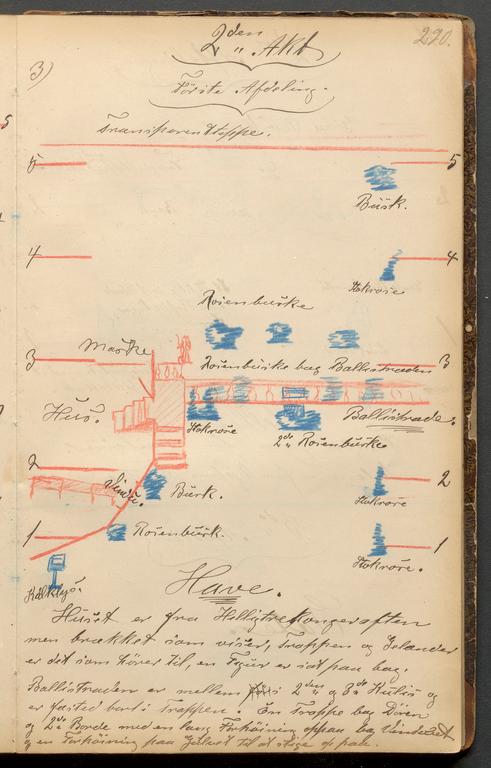 220.
2den Akt
3)
Förste Afdeling.
Transparenttæppe.
5 5
Busk.
4 4
Stokrose
Rosenbuske
Maske
Rosenbuske bag Ballistraden
3 3
Huus.
Ballistrade.
Stokrose
2de Rosenbuske
2 2
Vindu.
Busk.
Stokrose
1 1
Rosenbusk.
Stokrose.
Kalklys.
Have.
Huset er fra Helligtrekongersaften
men brækket som viser, Trappen og Gelænder
er det som hører til, en Figur er sat paa bag.
Ballistraden er mellem 2den og 3de Kulis og
er fæsted bort i Trappen. En Trappe bag Dören
og 2de Borde med en lang Forhöining oppaa bag Vinduet
og en Forhöining paa Gulvet til at stige op paa.